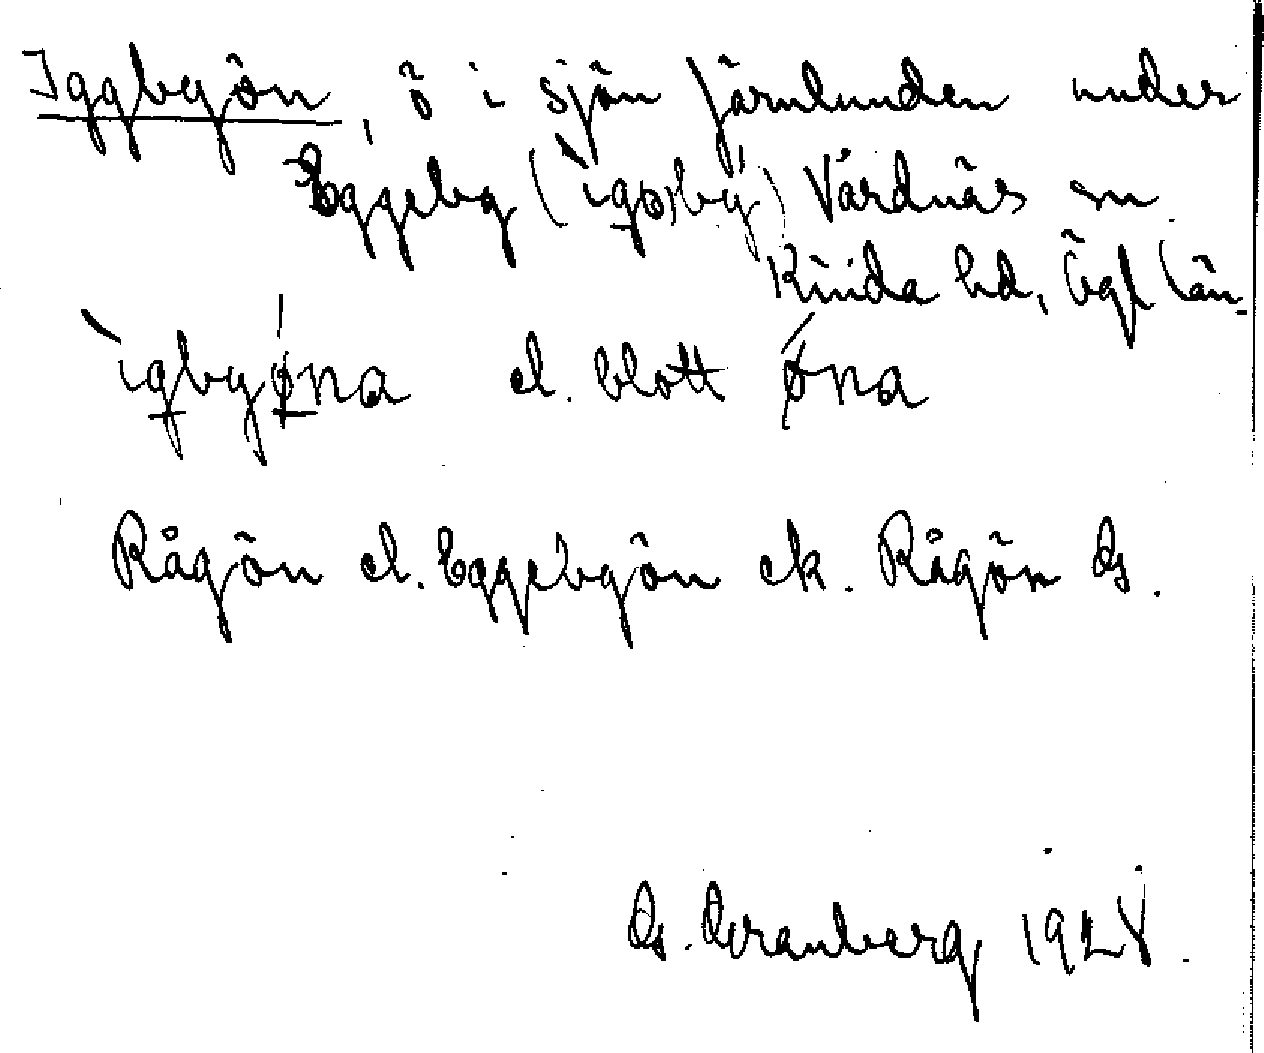 Iggbyön, ö i sjön Järnlunden under
Eggeby (ìgəby) Vårdnäs sn
Kinda hd, Ögl län.
ìgbyǿna el. blott ǿna
Rågön el. Eggebyön ek. Rågön Gs.
G. Granberg 1928.